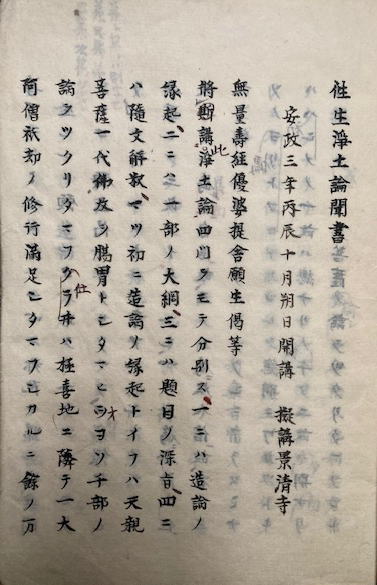 往生淨土論聞書
安政三年丙辰十月朔日開講 擬講景清寺
無量壽經優婆提舎願生偈等
將此講淨土論四門ヲモテ分別ス一ニハ造論ノ
縁起二ニハ一部ノ大綱三ニハ題目ノ深旨四ニ
ハ隨文解釈マツ初ニ造論ノ縁起トイフハ天親
菩薩一代佛教ヲ腸胃トシタマヒヲヨソ千部ノ
論ヲツクリタマフクラ井ハ極喜地ニ隣テ一大
阿僧祇劫ノ修行滿足シタマフシカルニ餘ノ万